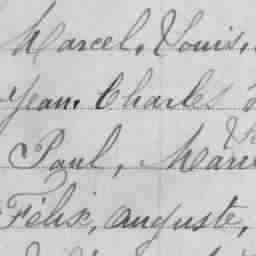 Marcel, Louis,
Jean. Charles
Paul, Marie
Félix, Auguste,